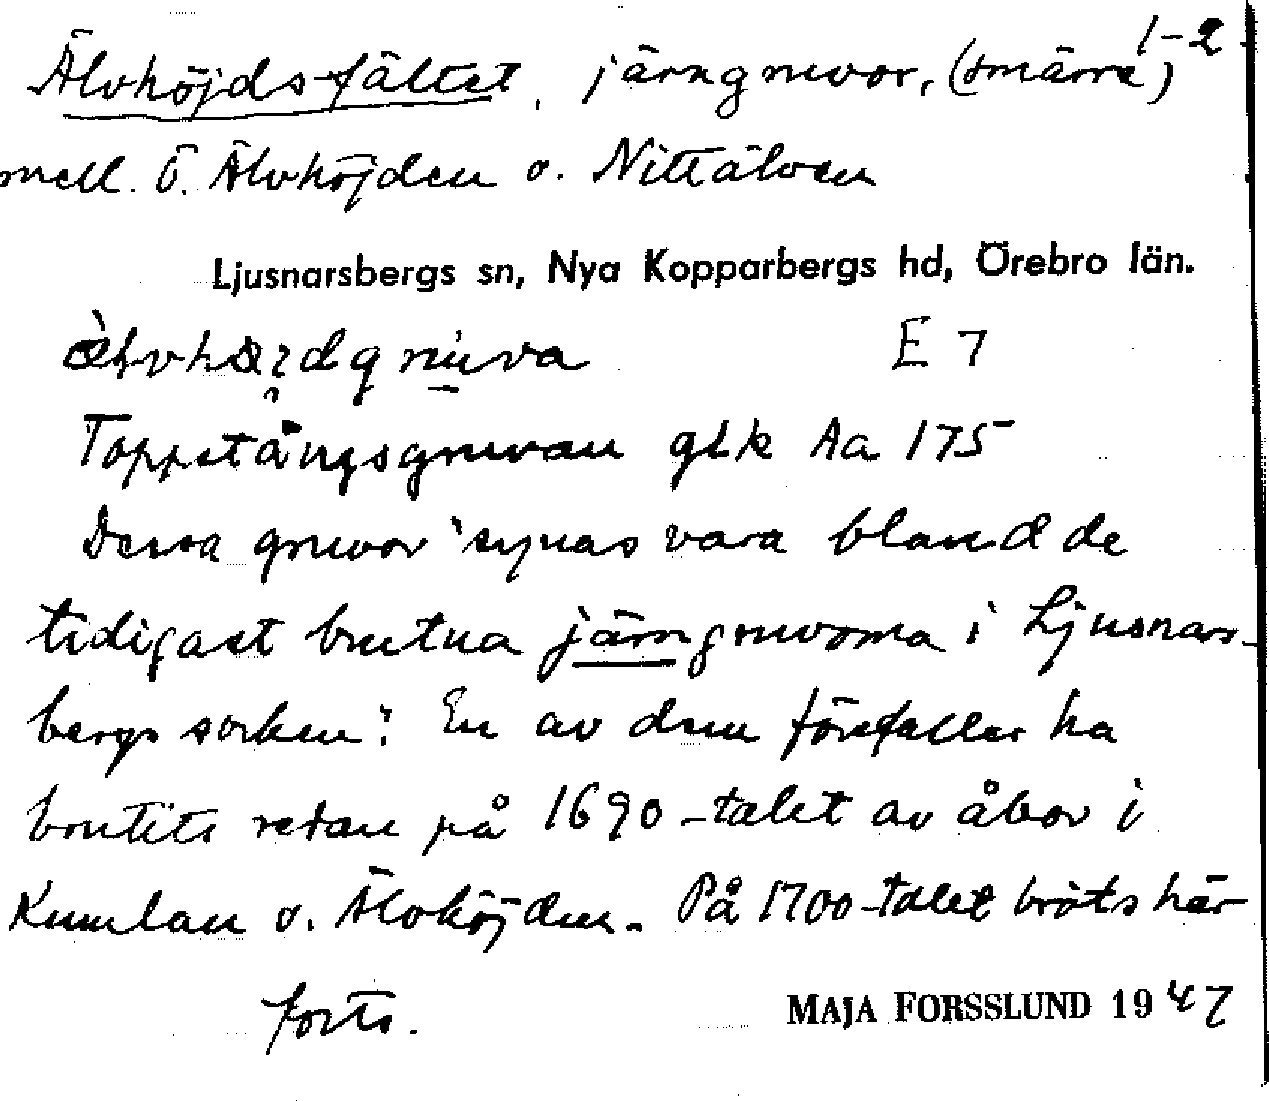 1-2
Älvhöjdsfältet, järngruvor, (smärre)
mell. Ö. Älvhöjden o. Nittälven
Ljusnarsbergs sn, Nya Kopparbergs hd, Örebro län.
E 7
Toppstångsgruvan glk Aa 175
Dessa gruvor "synas vara bland de
tidigast brutna järngruvorna i Ljusnars-
bergs socken". En av dem förefaller ha
brutits redan på 1690-talet av åbor i
Kumlan o. Älvhöjden. På 1700-talet bröts här
forts.
MAJA FORSSLUND 1947